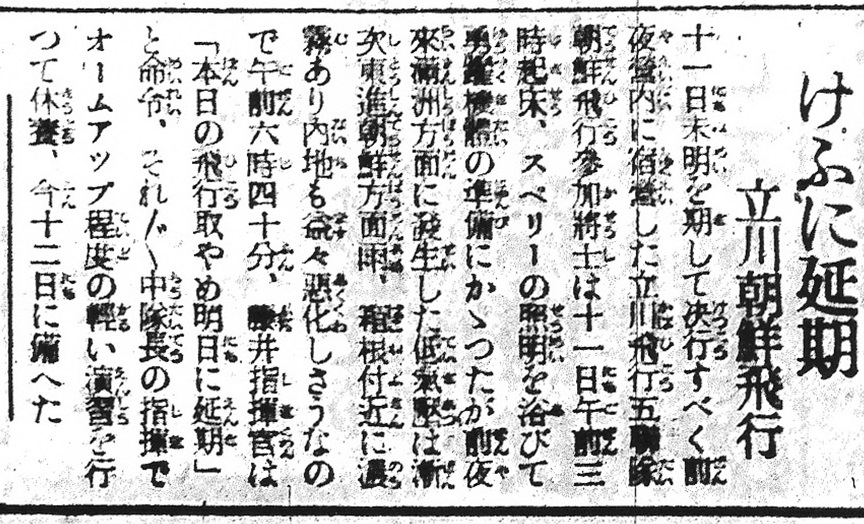 けふに延期
立川朝鮮飛行
十一日未明を期して決行すべく前
夜營内に宿營した立川飛行五聯隊
朝鮮飛行參加將士は十一日午前三
時起床、スペリーの照明を浴びて
勇躍機體の準備にかゝつたが前夜
來滿洲方面に發生した低氣壓は漸
次東進朝鮮方面雨、箱根付近に濃
霧あり内地も益々惡化しさうなの
で午前六時四十分、藤井指揮官は
「本日の飛行取やめ明日に延期」
と命令、それ〴〵中隊長の指揮で
オームアップ程度の輕い演習を行
つて休養、今十二日に備へた